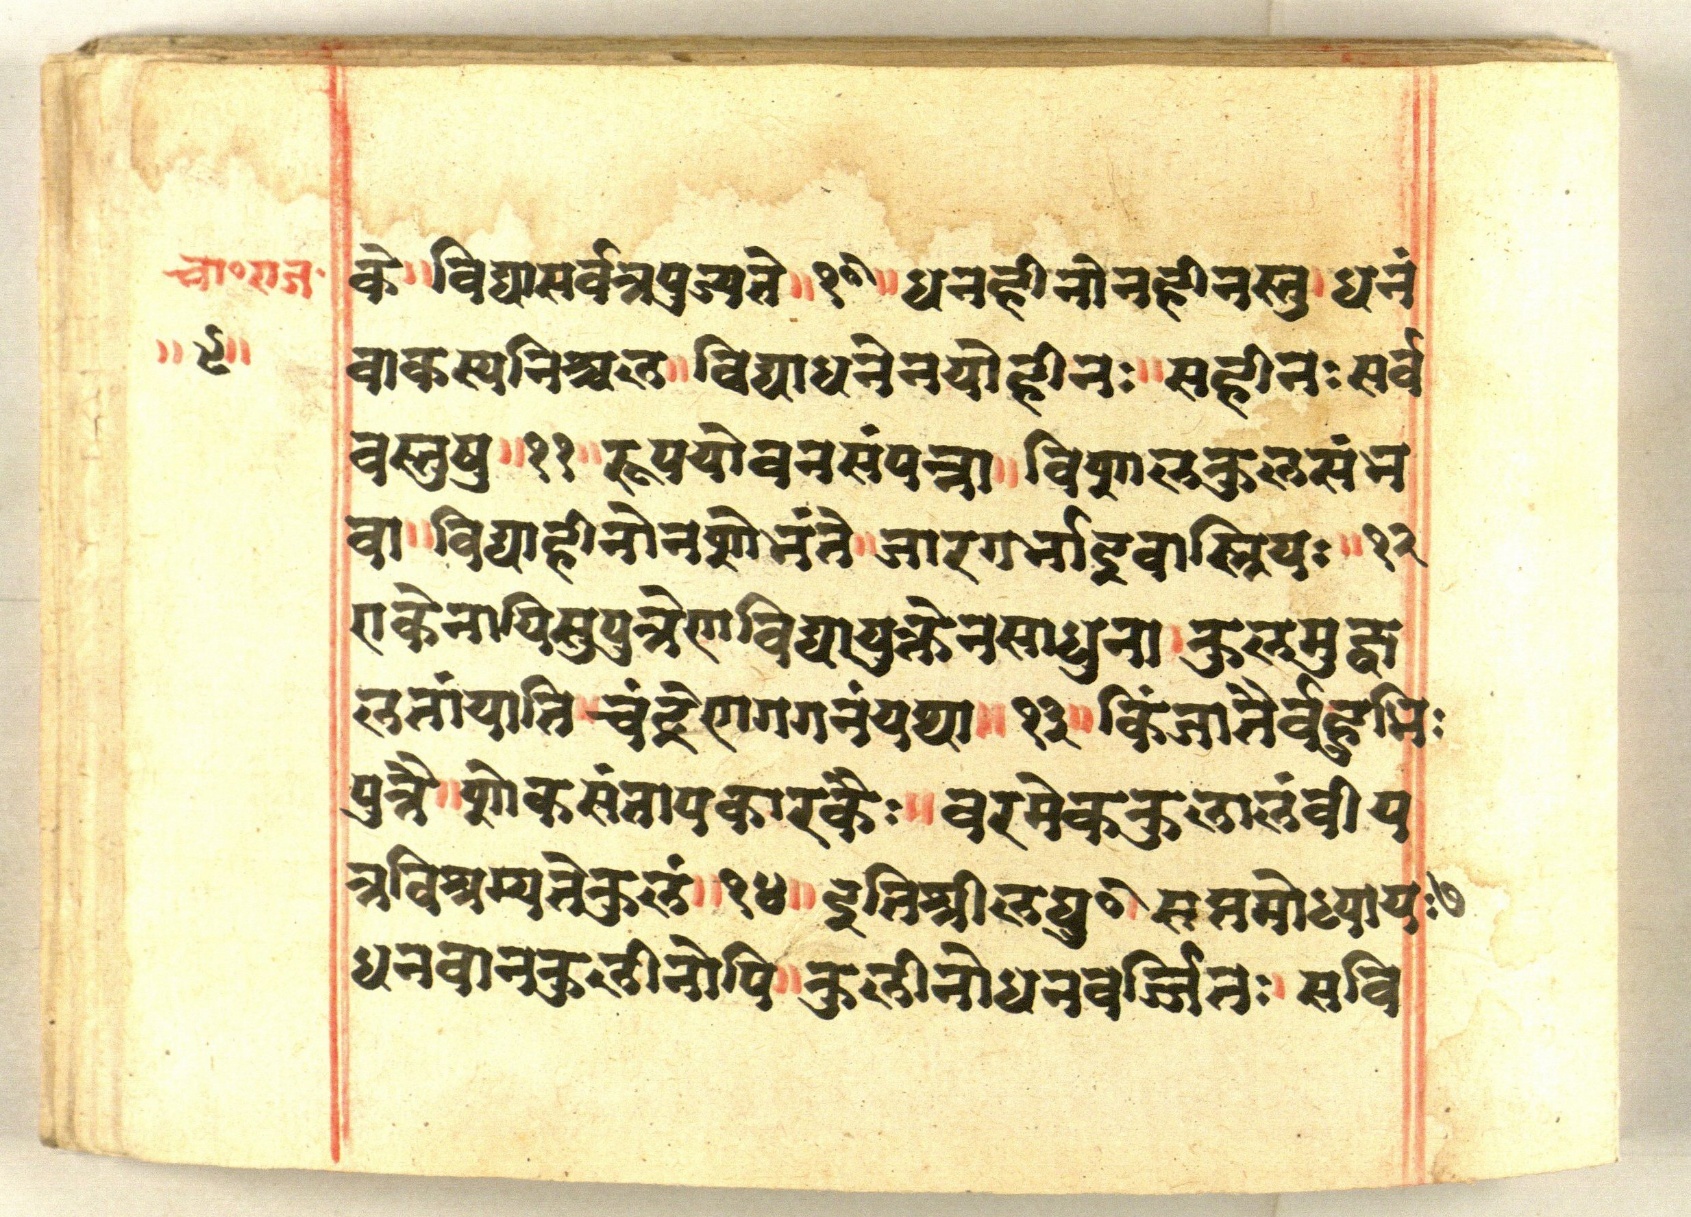 चा॰राज॰
॥९॥
के॥विद्यासर्वत्रपुज्यते॥१०॥धनहीनोनहीनस्तु।धनं
वाकस्यनिश्चल॥विद्याधनेनयोहीनः॥सहीनःसर्व
वस्तुषु॥११॥रूपयोवनसंपन्ना॥विशालकुलसंभ
वा॥विद्याहीनोनशोभंते॥जारगर्भाइवास्त्रियः॥१२
एकेनापिसुपुत्रेणविद्यायुक्तेनसाधुना।कुलमुद्ध
लतांयाति॥चंद्रेणगगनंयथा॥१३॥किंजातैर्वहुभिः
पुत्रै॥शोकसंतापकारकैः॥वरमेककुलालंवीय
त्रविश्रम्यतेकुलं॥१४॥इतिश्रीलघु०सप्तमोध्यायः७
धनवानकुलीनोपि॥कुलीनोधनवर्ज्जितः।सवि